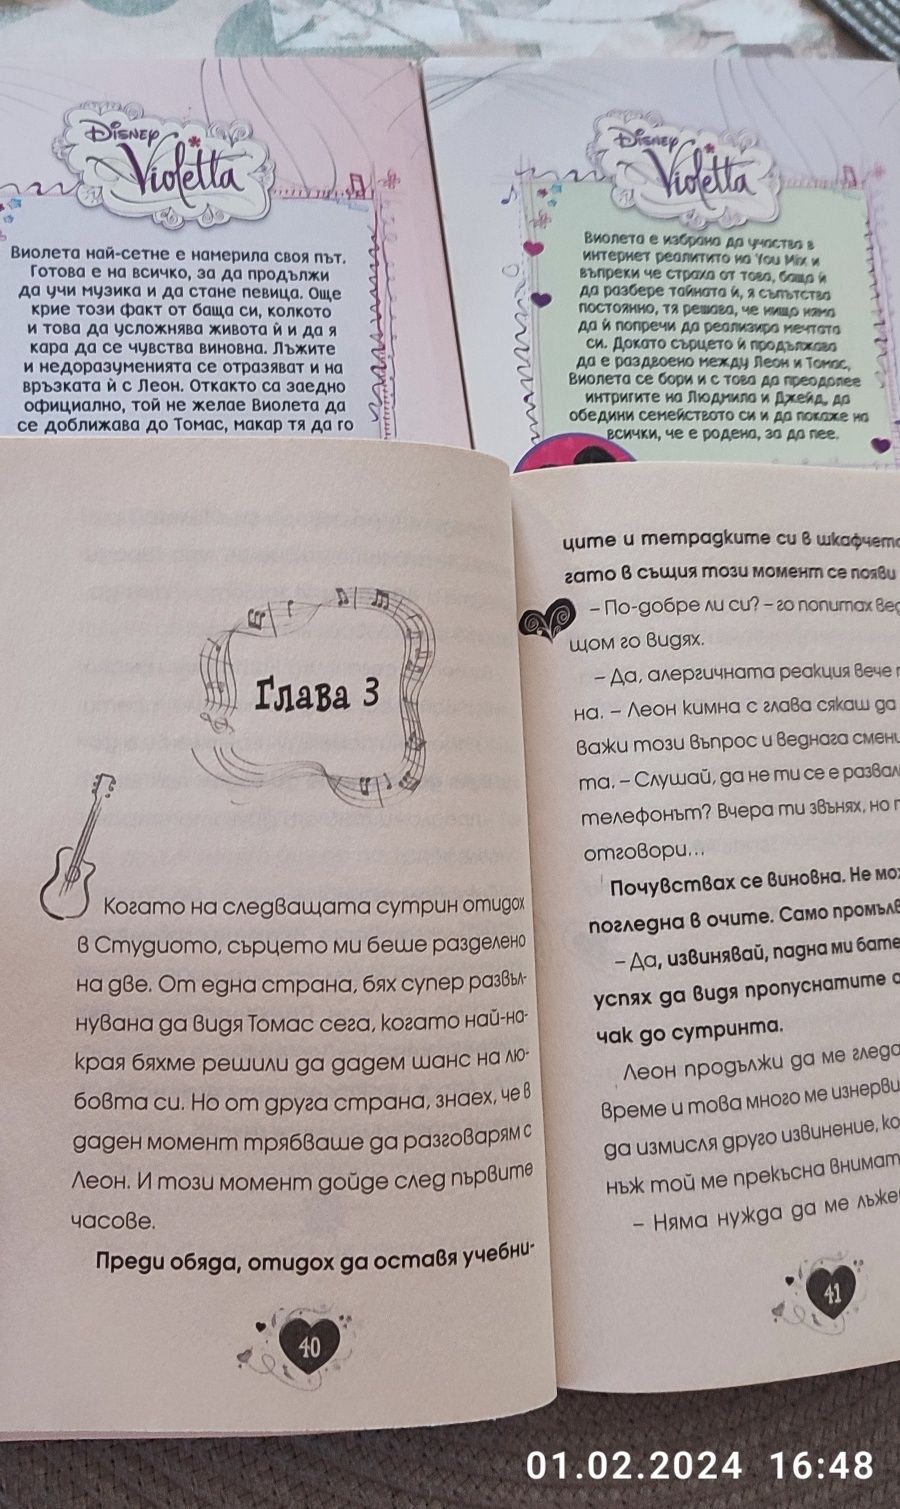 Disney
Violetta
Виолета най-сетне е намерила своя път.
Готова е на всичко, за да продължи
да учи музика и да стане певица. Още
крие този факт от баща си, колкото
и това да усложнява живота ѝ и да я
кара да се чувства виновна. Лъжите
и недоразуменията се отразяват и на
връзката ѝ с Леон. Откакто са заедно
официално, той не желае Виолета да
се доближава до Томас, макар тя да го
Disney
Violetta
Виолета е избрана да участва в
интернет реалитито на You Mix и
въпреки че страха от това, баща ѝ
да разбере тайната ѝ, я съпътства
постоянно, тя решава, че нищо няма
да ѝ попречи да реализира мечтата
си. Докато сърцето ѝ продължава
да е раздвоено между Леон и Томас,
Виолета се бори и с това да преодолее
интригите на Людмила и Джейд, да
обедини семейството си и да покаже на
всички, че е родена, за да пее.
Глава 3
Когато на следващата сутрин отидох
в Студиото, сърцето ми беше разделено
на две. От една страна, бях супер развъл-
нувана да видя Томас сега, когато най-на-
края бяхме решили да дадем шанс на лю-
бовта си. Но от друга страна, знаех, че в
даден момент трябваше да разговарям с
Леон. И този момент дойде след първите
часове.
Преди обяда, отидох да оставя учебни-
40
ците и тетрадките си в шкафчето
гато в същия този момент се появи
– По-добре ли си? – го попитах вед
щом го видях.
– Да, алергичната реакция вече
на. – Леон кимна с глава сякаш да
важи този въпрос и веднага смени
та. – Слушай, да не ти се е развал
телефонът? Вчера ти звънях, но
отговори...
Почувствах се виновна. Не мож
погледна в очите. Само промълв
– Да, извинявай, падна ми бате
успях да видя пропуснатите
чак до сутринта.
Леон продължи да ме гледа
време и това много ме изнерви
да измисля друго извинение, ко
нъж той ме прекъсна внимат
– Няма нужда да ме лъже
41
01.02.2024 16:48